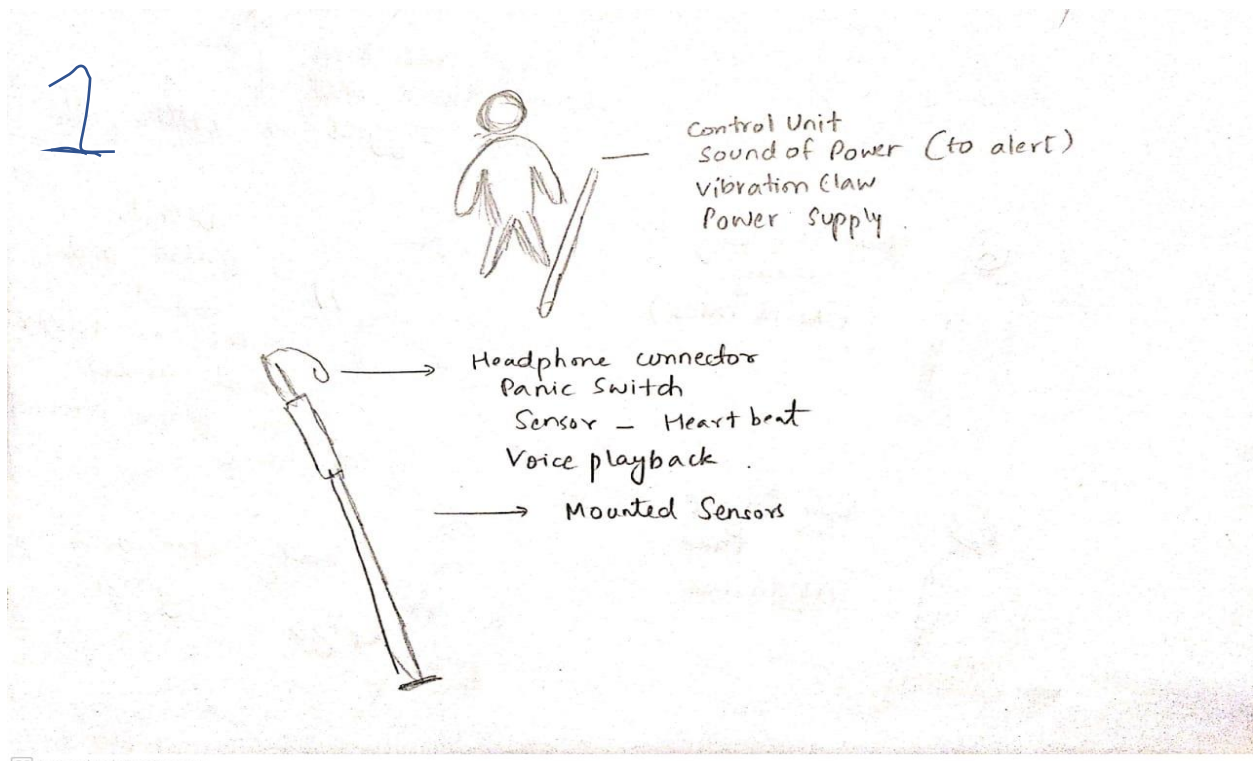 1
Control Unit
Sound of Power (to alert)
Vibration Claw
Power Supply.
Headphone connector
Panic Switch
Sensor - Heart beat
Voice playback.
Mounted Sensors